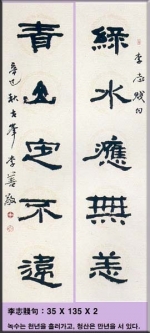 李志賤句
綠水應無恙
青山定不違
辛巳秋古峯 李善敬
李志賤句 : 35 X 135 X 2
녹수는 천년을 흘러가고, 청산은 만년을 서 있다.